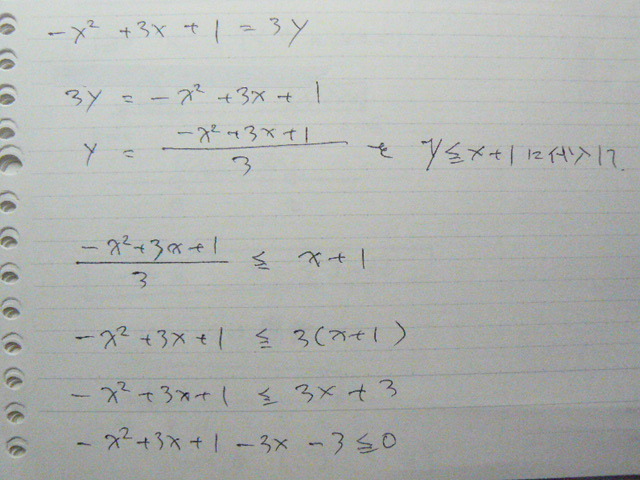 -x² + 3x + 1 = 3y
3y = -x² + 3x + 1
y = (-x² + 3x + 1)/3 を y ≦ x + 1 に代入して
(-x² + 3x + 1)/3 ≦ x + 1
-x² + 3x + 1 ≦ 3(x + 1)
-x² + 3x + 1 ≦ 3x + 3
-x² + 3x + 1 - 3x - 3 ≦ 0